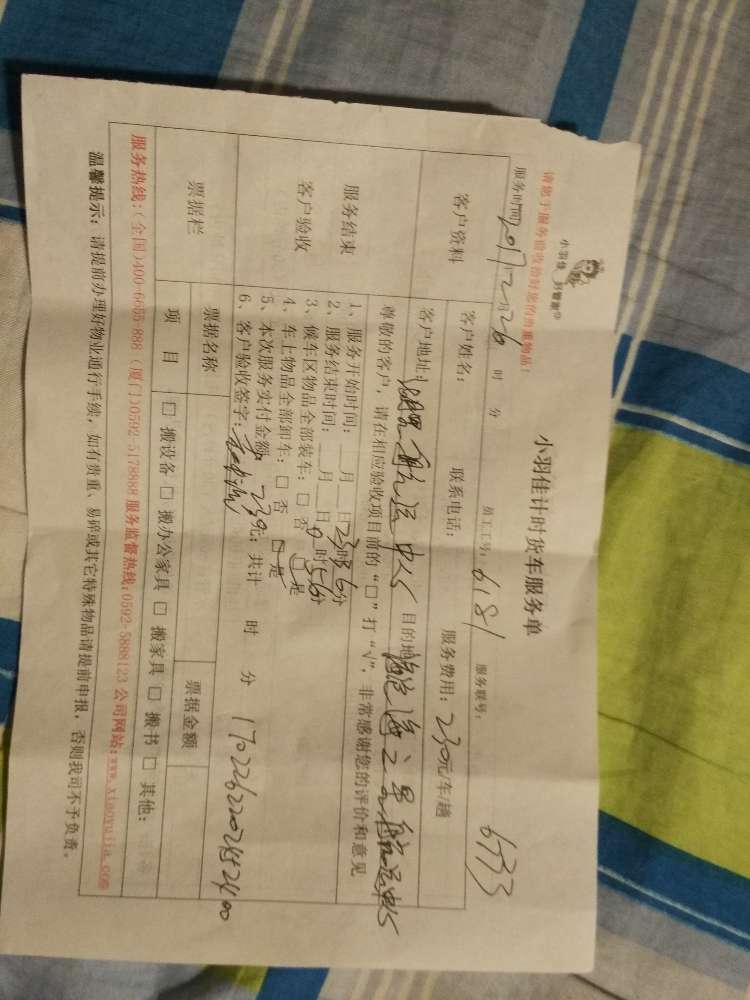 小羽佳 好管家®
请您于服务前收拾好您的贵重物品!
小羽佳计时货车服务单
服务时间 时 分 员工工号: 6181 服务联号: 6733
客户资料
客户姓名: 联系电话: 服务费用: 230元/车/趟
客户地址: 目的地
尊敬的客户,请在相应验收项目前的“□”打“√”,非常感谢您的评价和意见
服务结束
客户验收
1、服务开始时间: 月 日 时 分
2、服务结束时间: 月 日 时 分
3、候车区物品全部装车: □ 否 □ 是
4、车上物品全部卸车: □ 否 □ 是
5、本次服务实付金额 230元; 共计 时 分
6、客户验收签字:
票据栏
票据名称 票据金额
项目 □ 搬设备 □ 搬办公家具 □ 搬家具 □ 搬书 □ 其他:
服务热线:(全国)400-6655-888 (厦门)0592-5178888 服务监督热线:0592-5888123 公司网站:www.xiaoyujia.com
温馨提示: 请提前办理好物业通行手续,如有贵重、易碎或其它特殊物品请提前申报,否则我司不予负责。